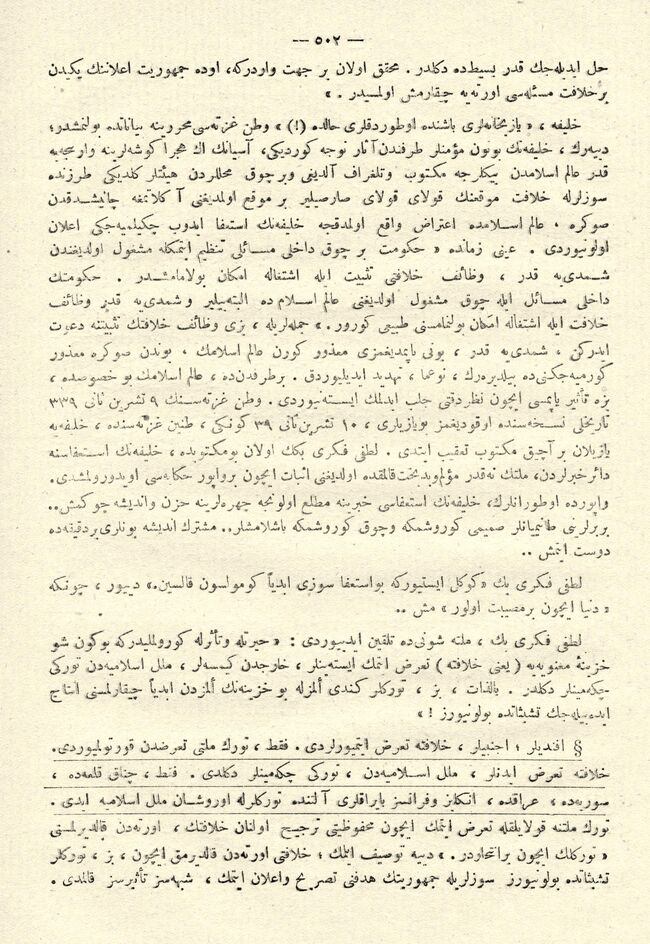 — ٥٠٢ —
حل ايديله‌جك قدر بسيط‌ده دكلدر . محقق اولان بر جهت واردركه، اوده جمهوريت اعلاننك يكيدن
بر خلافت مسئله‌سى اورته‌يه چيقارمش اولمسيدر . »
خليفه ، « يازيخانه‌لرى باشنده اوطوردقلرى حالده (!) » وطن غزته‌سى محررينه بياناتده بولنمشدر؛
دييه‌رك ، خليفه‌نك بوتون مؤمنلر طرفندن آثار توجه كورديكى، آسيانك اك هجرا كوشه‌لرينه وارنجه‌يه
قدر عالم اسلامدن بيكلرجه مكتوب وتلغراف آلديغى وبر چوق محللردن هيئتلر كلديكى طرزنده
سوزلرله خلافت موقعنك قولاى قولاى صارصيلير بر موقع اولمديغنى آكلاتمغه چاليشدقدن
صوكره ، عالم اسلامده اعتراض واقع اولمدقجه خليفه‌نك استعفا ايدوب چكيلميه‌جكى اعلان
اولونيوردى . عينى زمانده « حكومت بر چوق داخلى مسائلى تنظيم ايتمكله مشغول اولديغندن
شمدى‌يه قدر ، وظائف خلافتى تثبيت ايله اشتغاله امكان بولامامشدر . حكومتك
داخلى مسائل ايله چوق مشغول اولديغنى عالم اسلام ده البته‌بيلير و شمدى‌يه قدر وظائف
خلافت ايله اشتغاله امكان بولنمامسنى طبيعى كورور . » جمله‌لريله ، بزى وظائف خلافتك تثبيتنه دعوت
ايدركن ، شمدى‌يه قدر ، بونى ياپمديغمزى معذور كورن عالم اسلامك ، بوندن صوكره معذور
كورميه‌جكنى‌ده بيلديره‌رك ، نوعما ، تهديد ايديليوردق . بر طرفدن‌ده ، عالم اسلامك بو خصوصده ،
بزه تأثير ياپمسى ايچون نظر دقتى جلب ايدلمك ايسته‌نيوردى . وطن غزته‌سنك ٩ تشرين ثانى ٣٣٩
تاريخلى نسخه‌سنده اوقوديغمز بو يازيلرى ، ١٠ تشرين ثانى ٣٩ كونكى ، طنين غزته‌سنده ، خليفه‌يه
يازيلان بر آچيق مكتوب تعقيب ايتدى . لطفى فكرى بكك اولان بومكتوبده ، خليفه‌نك استعفاسنه
دائر خبرلردن، ملتك نه‌قدر مؤلم‌وبدبخت‌قالمقده اولديغنى اثبات ايچون بر واپور حكايه‌سى اويدورولمشدى.
واپورده اوطورانلرك، خليفه‌نك استعفاسى خبرينه مطلع اولونجه چهره‌لرينه حزن وانديشه چوكمش..
بربرلرينى طانيميانلر صميمى كوروشمكه وچوق كوروشمكه باشلامشلر.. مشترك انديشه بونلرى بردقيقه‌ده
دوست ايتمش ..
لطفى فكرى بك « كوكل ايستيوركه بو استعفا سوزى ابدياً كومولسون قالسين.» دييور ، چونكه
« دنيا ايچون بر مصيبت اولور » مش ..
لطفى فكرى بك ، ملته شونى‌ده تلقين ايديوردى : « حيرتله وتأثرله كورولمليدركه بوكون شو
خزينۀ معنويه‌يه ( يعنى خلافته ) تعرض ايتمك ايسته‌ينلر ، خارجدن كيمسه‌لر ، ملل اسلاميه‌دن توركى
چكه‌مينلر دكلدر . بالذات ، بز ، توركلر كندى المزله بو خزينه‌نك المزدن ابدياً چيقارلمسنى انتاج
ايده‌بيله‌جك تشبثاتده بولونيورز ! »
§ افنديلر ، اجنبيلر ، خلافته تعرض ايتميورلردى . فقط ، تورك ملتى تعرضدن قورتولميوردى.
خلافته تعرض ايدنلر ، ملل اسلاميه‌دن ، توركى چكه‌مينلر دكلدى . فقط ، چناق قلعه‌ده ،
سوريه‌ده ، عراقده ، انكليز وفرانسز بايراقلرى آلتنده توركلرله اوروشان ملل اسلاميه ايدى .
تورك ملتنه قولايلقله تعرض ايتمك ايچون محفوظيتى ترجيح اولنان خلافتك ، اورته‌دن قالديرلمسنى
« توركلك ايچون بر انتحاردر. » دييه توصيف ايتمك ؛ خلافتى اورته‌دن قالديرمق ايچون ، بز ، توركلر
تشبثاتده بولونيورز سوزلريله جمهوريتك هدفنى تصريح واعلان ايتمك ، شبهه‌سز تأثيرسز قالمدى .